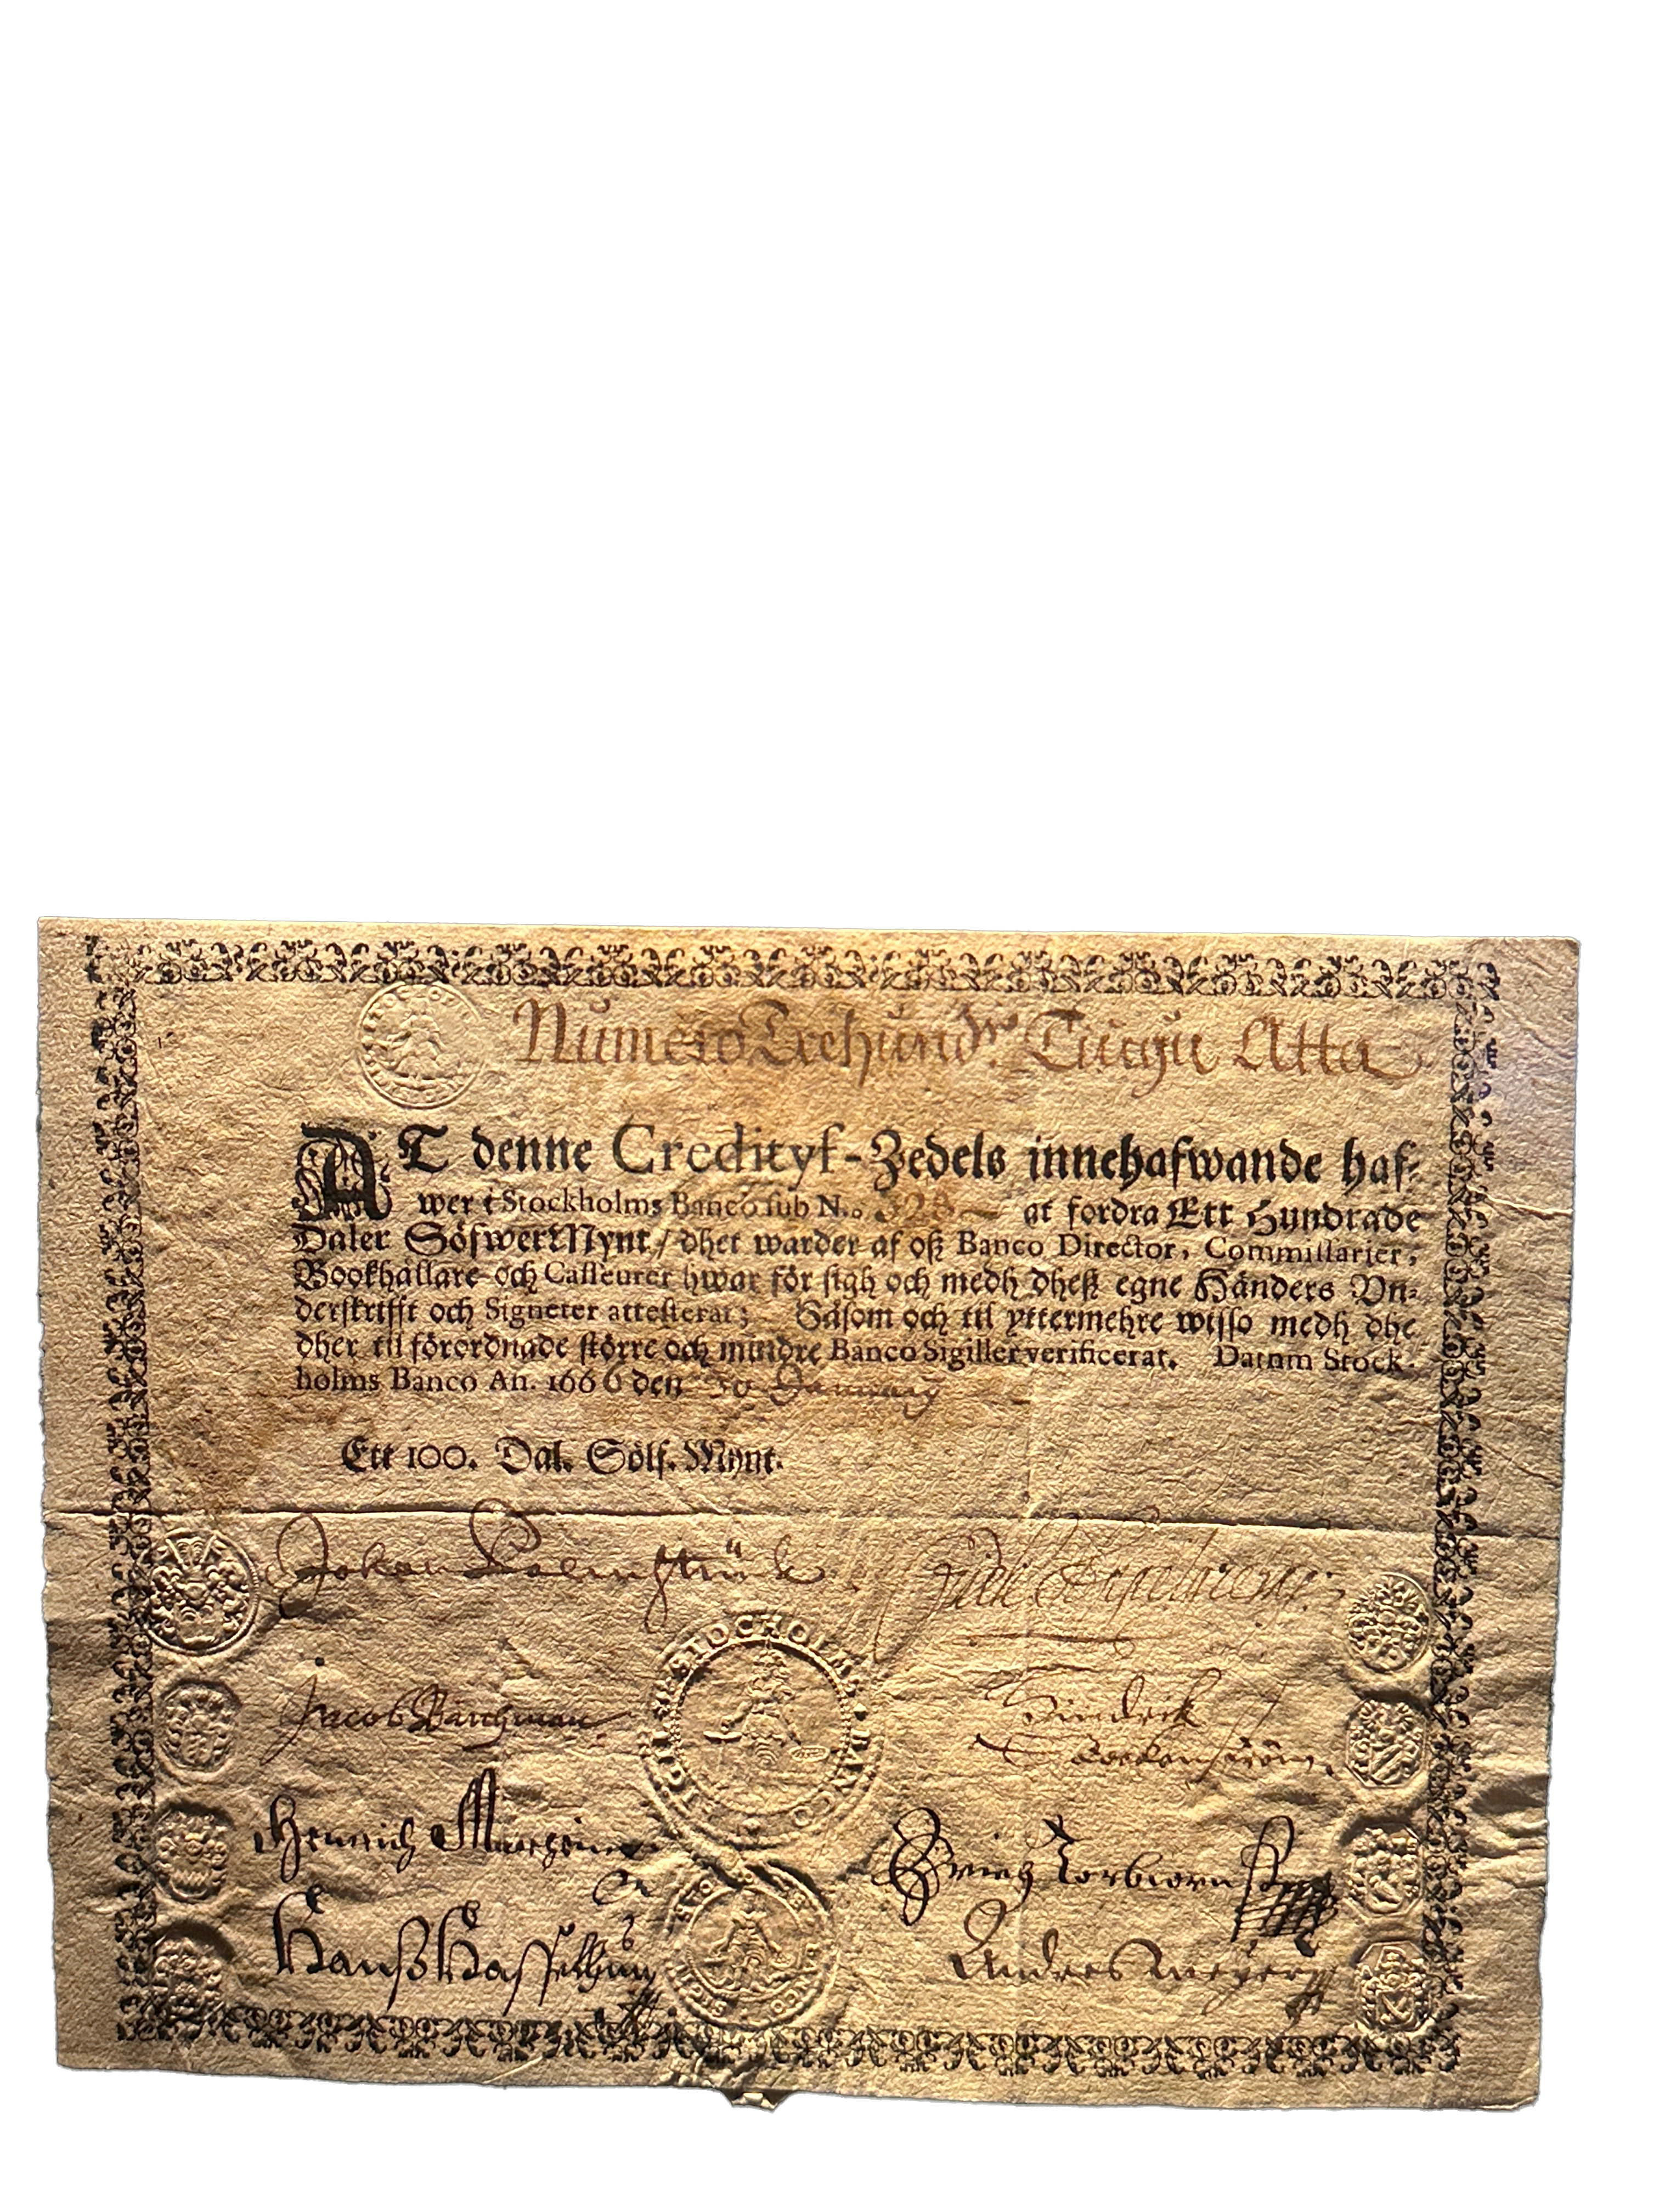 Numero Trehund. Tiugu Åtta
AT denne Credityf-Zedels innehafwande haf-
wer i Stockholms Banco sub N.o 328 at fordra Ett Hundrade
Daler SölfwerMynt / dhet warder af oß Banco Director, Commissarier,
Bookhållare och Casseurer hwar för sigh och medh dheß egne Händers Vn-
derskrifft och Signeter attesterat; Såsom och til yttermehre wisso medh dhe
dher til förordnade större och mindre Banco Sigiller verificerat. Datum Stock-
holms Banco An. 1666 den January
Ett 100. Dal. Sölf. Mynt.
Johan Palmstruck
SIGEL STOCHOLMS BANCO
Hindrik
Jacob
Henrich
Hanß
Anders Meijer